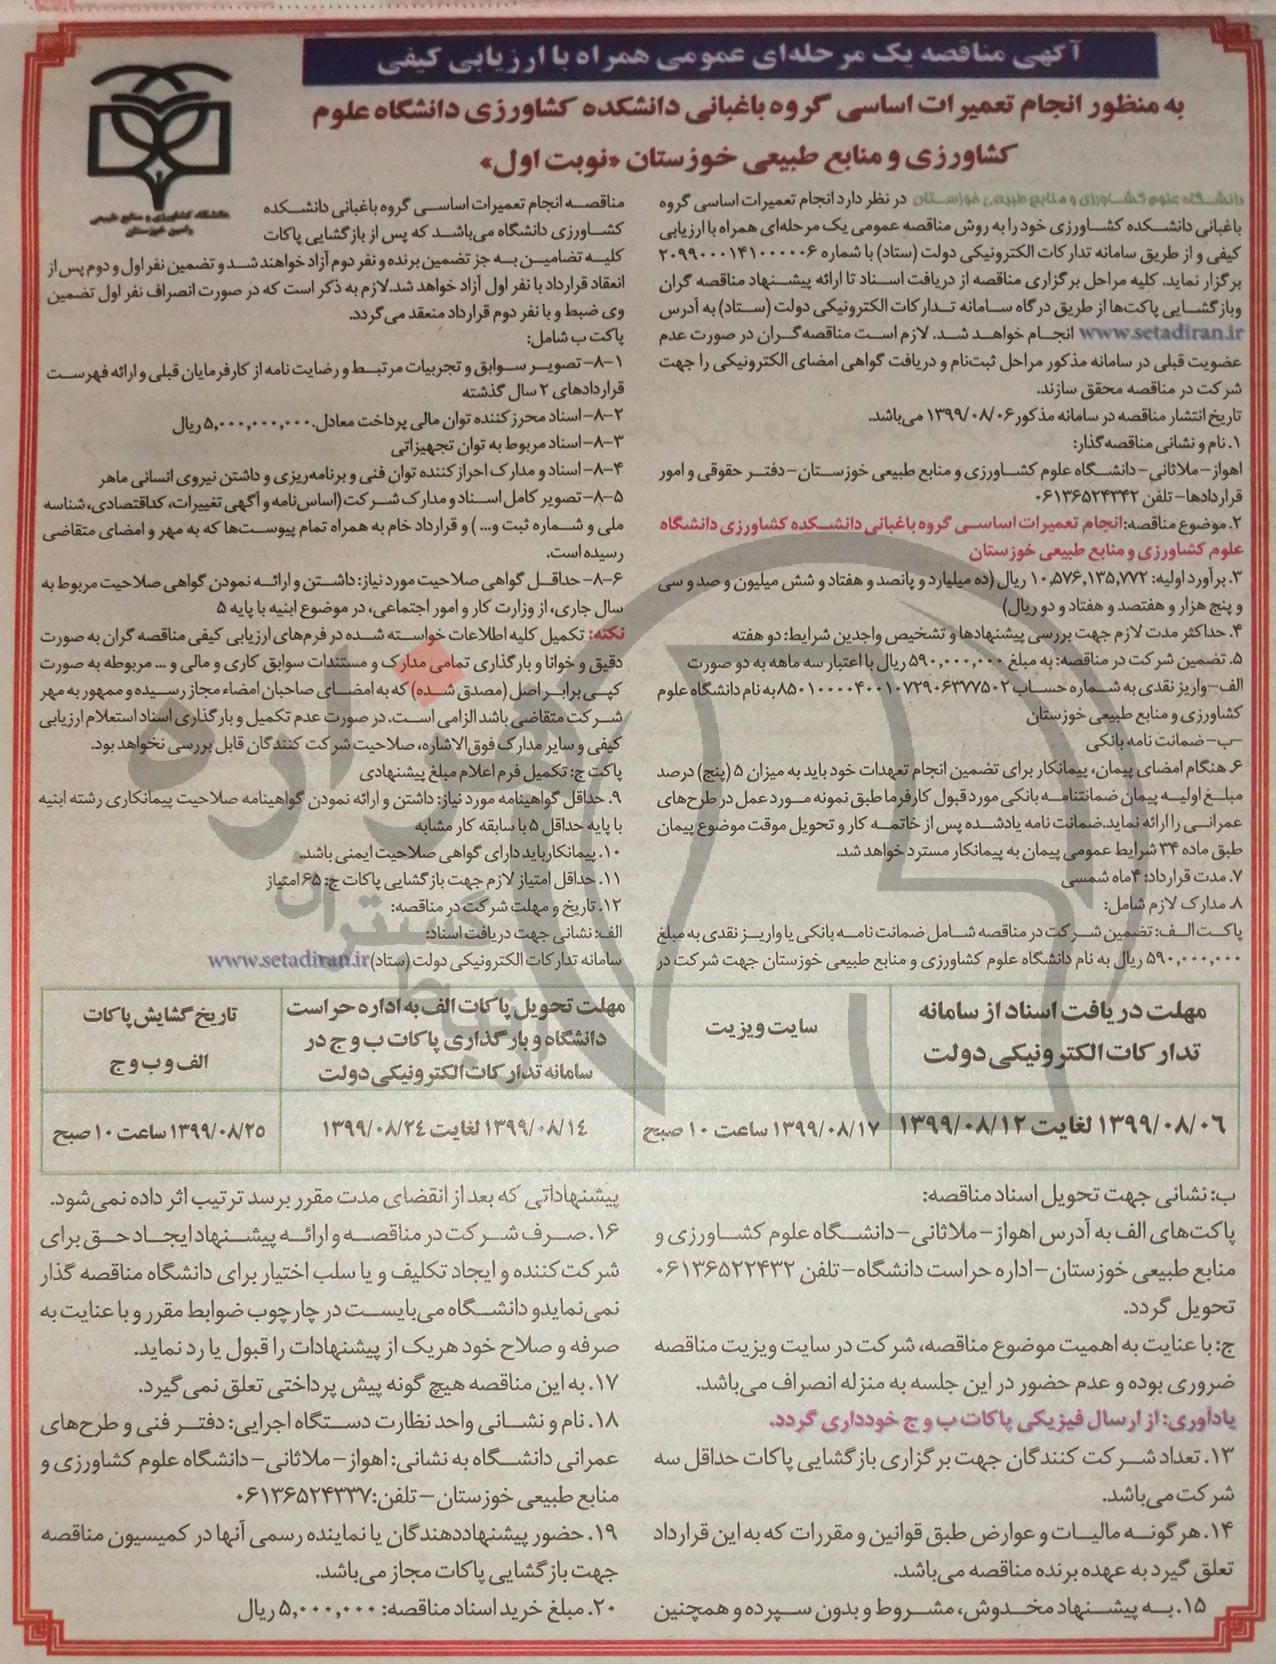 آگهی مناقصه یک مرحله‌ای عمومی همراه با ارزیابی کیفی
به منظور انجام تعمیرات اساسی گروه باغبانی دانشکده کشاورزی دانشگاه علوم
کشاورزی و منابع طبیعی خوزستان «نوبت اول»
دانشگاه کشاورزی و منابع طبیعی
رامین خوزستان
دانشگاه علوم کشاورزی و منابع طبیعی خوزستان در نظر دارد انجام تعمیرات اساسی گروه
باغبانی دانشکده کشاورزی خود را به روش مناقصه عمومی یک مرحله‌ای همراه با ارزیابی
کیفی و از طریق سامانه تدارکات الکترونیکی دولت (ستاد) با شماره ۲۰۹۹۰۰۰۱۴۱۰۰۰۰۰۶
برگزار نماید. کلیه مراحل برگزاری مناقصه از دریافت اسناد تا ارائه پیشنهاد مناقصه گران
وبازگشایی پاکت‌ها از طریق درگاه سامانه تدارکات الکترونیکی دولت (ستاد) به آدرس
www.setadiran.ir انجام خواهد شد. لازم است مناقصه‌گران در صورت عدم
عضویت قبلی در سامانه مذکور مراحل ثبت‌نام و دریافت گواهی امضای الکترونیکی را جهت
شرکت در مناقصه محقق سازند.
تاریخ انتشار مناقصه در سامانه مذکور ۱۳۹۹/۰۸/۰۶ می‌باشد.
۱. نام و نشانی مناقصه‌گذار:
اهواز-ملاثانی-دانشگاه علوم کشاورزی و منابع طبیعی خوزستان-دفتر حقوقی و امور
قراردادها-تلفن ۰۶۱۳۶۵۲۴۳۴۲
۲. موضوع مناقصه: انجام تعمیرات اساسی گروه باغبانی دانشکده کشاورزی دانشگاه
علوم کشاورزی و منابع طبیعی خوزستان
۳. برآورد اولیه: ۱۰,۵۷۶,۱۳۵,۷۷۲ ریال (ده میلیارد و پانصد و هفتاد و شش میلیون و صد و سی
و پنج هزار و هفتصد و هفتاد و دو ریال)
۴. حداکثر مدت لازم جهت بررسی پیشنهادها و تشخیص واجدین شرایط: دو هفته
۵. تضمین شرکت در مناقصه: به مبلغ ۵۹۰,۰۰۰,۰۰۰ ریال با اعتبار سه ماهه به دو صورت
الف-واریز نقدی به شماره حساب ۸۵۰۱۰۰۰۰۴۰۰۱۰۷۲۹۰۶۳۷۷۵۰۲ به نام دانشگاه علوم
کشاورزی و منابع طبیعی خوزستان
-ب-ضمانت نامه بانکی
۶. هنگام امضای پیمان، پیمانکار برای تضمین انجام تعهدات خود باید به میزان ۵ (پنج) درصد
مبلغ اولیه پیمان ضمانتنامه بانکی مورد قبول کارفرما طبق نمونه مورد عمل در طرح‌های
عمرانی را ارائه نماید.ضمانت نامه یادشده پس از خاتمه کار و تحویل موقت موضوع پیمان
طبق ماده ۳۴ شرایط عمومی پیمان به پیمانکار مسترد خواهد شد.
۷. مدت قرارداد: ۴ماه شمسی
۸. مدارک لازم شامل:
پاکت الف: تضمین شرکت در مناقصه شامل ضمانت نامه بانکی یا واریز نقدی به مبلغ
۵۹۰,۰۰۰,۰۰۰ ریال به نام دانشگاه علوم کشاورزی و منابع طبیعی خوزستان جهت شرکت در
مناقصه انجام تعمیرات اساسی گروه باغبانی دانشکده
کشاورزی دانشگاه می‌باشد که پس از بازگشایی پاکات
کلیه تضامین به جز تضمین برنده و نفر دوم آزاد خواهند شد و تضمین نفر اول و دوم پس از
انعقاد قرارداد با نفر اول آزاد خواهد شد.لازم به ذکر است که در صورت انصراف نفر اول تضمین
وی ضبط و با نفر دوم قرارداد منعقد می‌گردد.
پاکت ب شامل:
۸-۱- تصویر سوابق و تجربیات مرتبط و رضایت نامه از کارفرمایان قبلی و ارائه فهرست
قراردادهای ۲ سال گذشته
۸-۲- اسناد محرز کننده توان مالی پرداخت معادل ۵,۰۰۰,۰۰۰,۰۰۰ ریال
۸-۳- اسناد مربوط به توان تجهیزاتی
۸-۴- اسناد و مدارک احراز کننده توان فنی و برنامه‌ریزی و داشتن نیروی انسانی ماهر
۸-۵- تصویر کامل اسناد و مدارک شرکت (اساس‌نامه و آگهی تغییرات، کداقتصادی، شناسه
ملی و شماره ثبت و... ) و قرارداد خام به همراه تمام پیوست‌ها که به مهر و امضای متقاضی
رسیده است.
۸-۶- حداقل گواهی صلاحیت مورد نیاز: داشتن و ارائه نمودن گواهی صلاحیت مربوط به
سال جاری، از وزارت کار و امور اجتماعی، در موضوع ابنیه با پایه ۵
نکته: تکمیل کلیه اطلاعات خواسته شده در فرم‌های ارزیابی کیفی مناقصه گران به صورت
دقیق و خوانا و بارگذاری تمامی مدارک و مستندات سوابق کاری و مالی و ... مربوطه به صورت
کپی برابر اصل (مصدق شده) که به امضای صاحبان امضاء مجاز رسیده و ممهور به مهر
شرکت متقاضی باشد الزامی است. در صورت عدم تکمیل و بارگذاری اسناد استعلام ارزیابی
کیفی و سایر مدارک فوق‌الاشاره، صلاحیت شرکت کنندگان قابل بررسی نخواهد بود.
پاکت ج: تکمیل فرم اعلام مبلغ پیشنهادی
۹. حداقل گواهینامه مورد نیاز: داشتن و ارائه نمودن گواهینامه صلاحیت پیمانکاری رشته ابنیه
با پایه حداقل ۵ با سابقه کار مشابه
۱۰. پیمانکار باید دارای گواهی صلاحیت ایمنی باشد.
۱۱. حداقل امتیاز لازم جهت بازگشایی پاکات ج: ۶۵ امتیاز
۱۲. تاریخ و مهلت شرکت در مناقصه:
الف: نشانی جهت دریافت اسناد:
سامانه تدارکات الکترونیکی دولت (ستاد) www.setadiran.ir
مهلت دریافت اسناد از سامانه
تدارکات الکترونیکی دولت
سایت ویزیت
مهلت تحویل پاکات الف به اداره حراست
دانشگاه و بارگذاری پاکات ب و ج در
سامانه تدارکات الکترونیکی دولت
تاریخ گشایش پاکات
الف و ب و ج
۱۳۹۹/۰۸/۰۶ لغایت ۱۳۹۹/۰۸/۱۲
۱۳۹۹/۰۸/۱۷ ساعت ۱۰ صبح
۱۳۹۹/۰۸/۱۴ لغایت ۱۳۹۹/۰۸/۲۴
۱۳۹۹/۰۸/۲۵ ساعت ۱۰ صبح
ب: نشانی جهت تحویل اسناد مناقصه:
پاکت‌های الف به آدرس اهواز-ملاثانی-دانشگاه علوم کشاورزی و
منابع طبیعی خوزستان-اداره حراست دانشگاه-تلفن ۰۶۱۳۶۵۲۲۴۳۲
تحویل گردد.
ج: با عنایت به اهمیت موضوع مناقصه، شرکت در سایت ویزیت مناقصه
ضروری بوده و عدم حضور در این جلسه به منزله انصراف می‌باشد.
یادآوری: از ارسال فیزیکی پاکات ب و ج خودداری گردد.
۱۳. تعداد شرکت کنندگان جهت برگزاری بازگشایی پاکات حداقل سه
شرکت می‌باشد.
۱۴. هرگونه مالیات و عوارض طبق قوانین و مقررات که به این قرارداد
تعلق گیرد به عهده برنده مناقصه می‌باشد.
۱۵. به پیشنهاد مخدوش، مشروط و بدون سپرده و همچنین
پیشنهاداتی که بعد از انقضای مدت مقرر برسد ترتیب اثر داده نمی‌شود.
۱۶. صرف شرکت در مناقصه و ارائه پیشنهاد ایجاد حق برای
شرکت کننده و ایجاد تکلیف و یا سلب اختیار برای دانشگاه مناقصه گذار
نمی‌نمایدو دانشگاه می‌بایست در چارچوب ضوابط مقرر و با عنایت به
صرفه و صلاح خود هریک از پیشنهادات را قبول یا رد نماید.
۱۷. به این مناقصه هیچ گونه پیش پرداختی تعلق نمی‌گیرد.
۱۸. نام و نشانی واحد نظارت دستگاه اجرایی: دفتر فنی و طرح‌های
عمرانی دانشگاه به نشانی: اهواز-ملاثانی-دانشگاه علوم کشاورزی و
منابع طبیعی خوزستان -تلفن:۰۶۱۳۶۵۲۴۳۳۷
۱۹. حضور پیشنهاددهندگان یا نماینده رسمی آنها در کمیسیون مناقصه
جهت بازگشایی پاکات مجاز می‌باشد.
۲۰. مبلغ خرید اسناد مناقصه: ۵,۰۰۰,۰۰۰ ریال